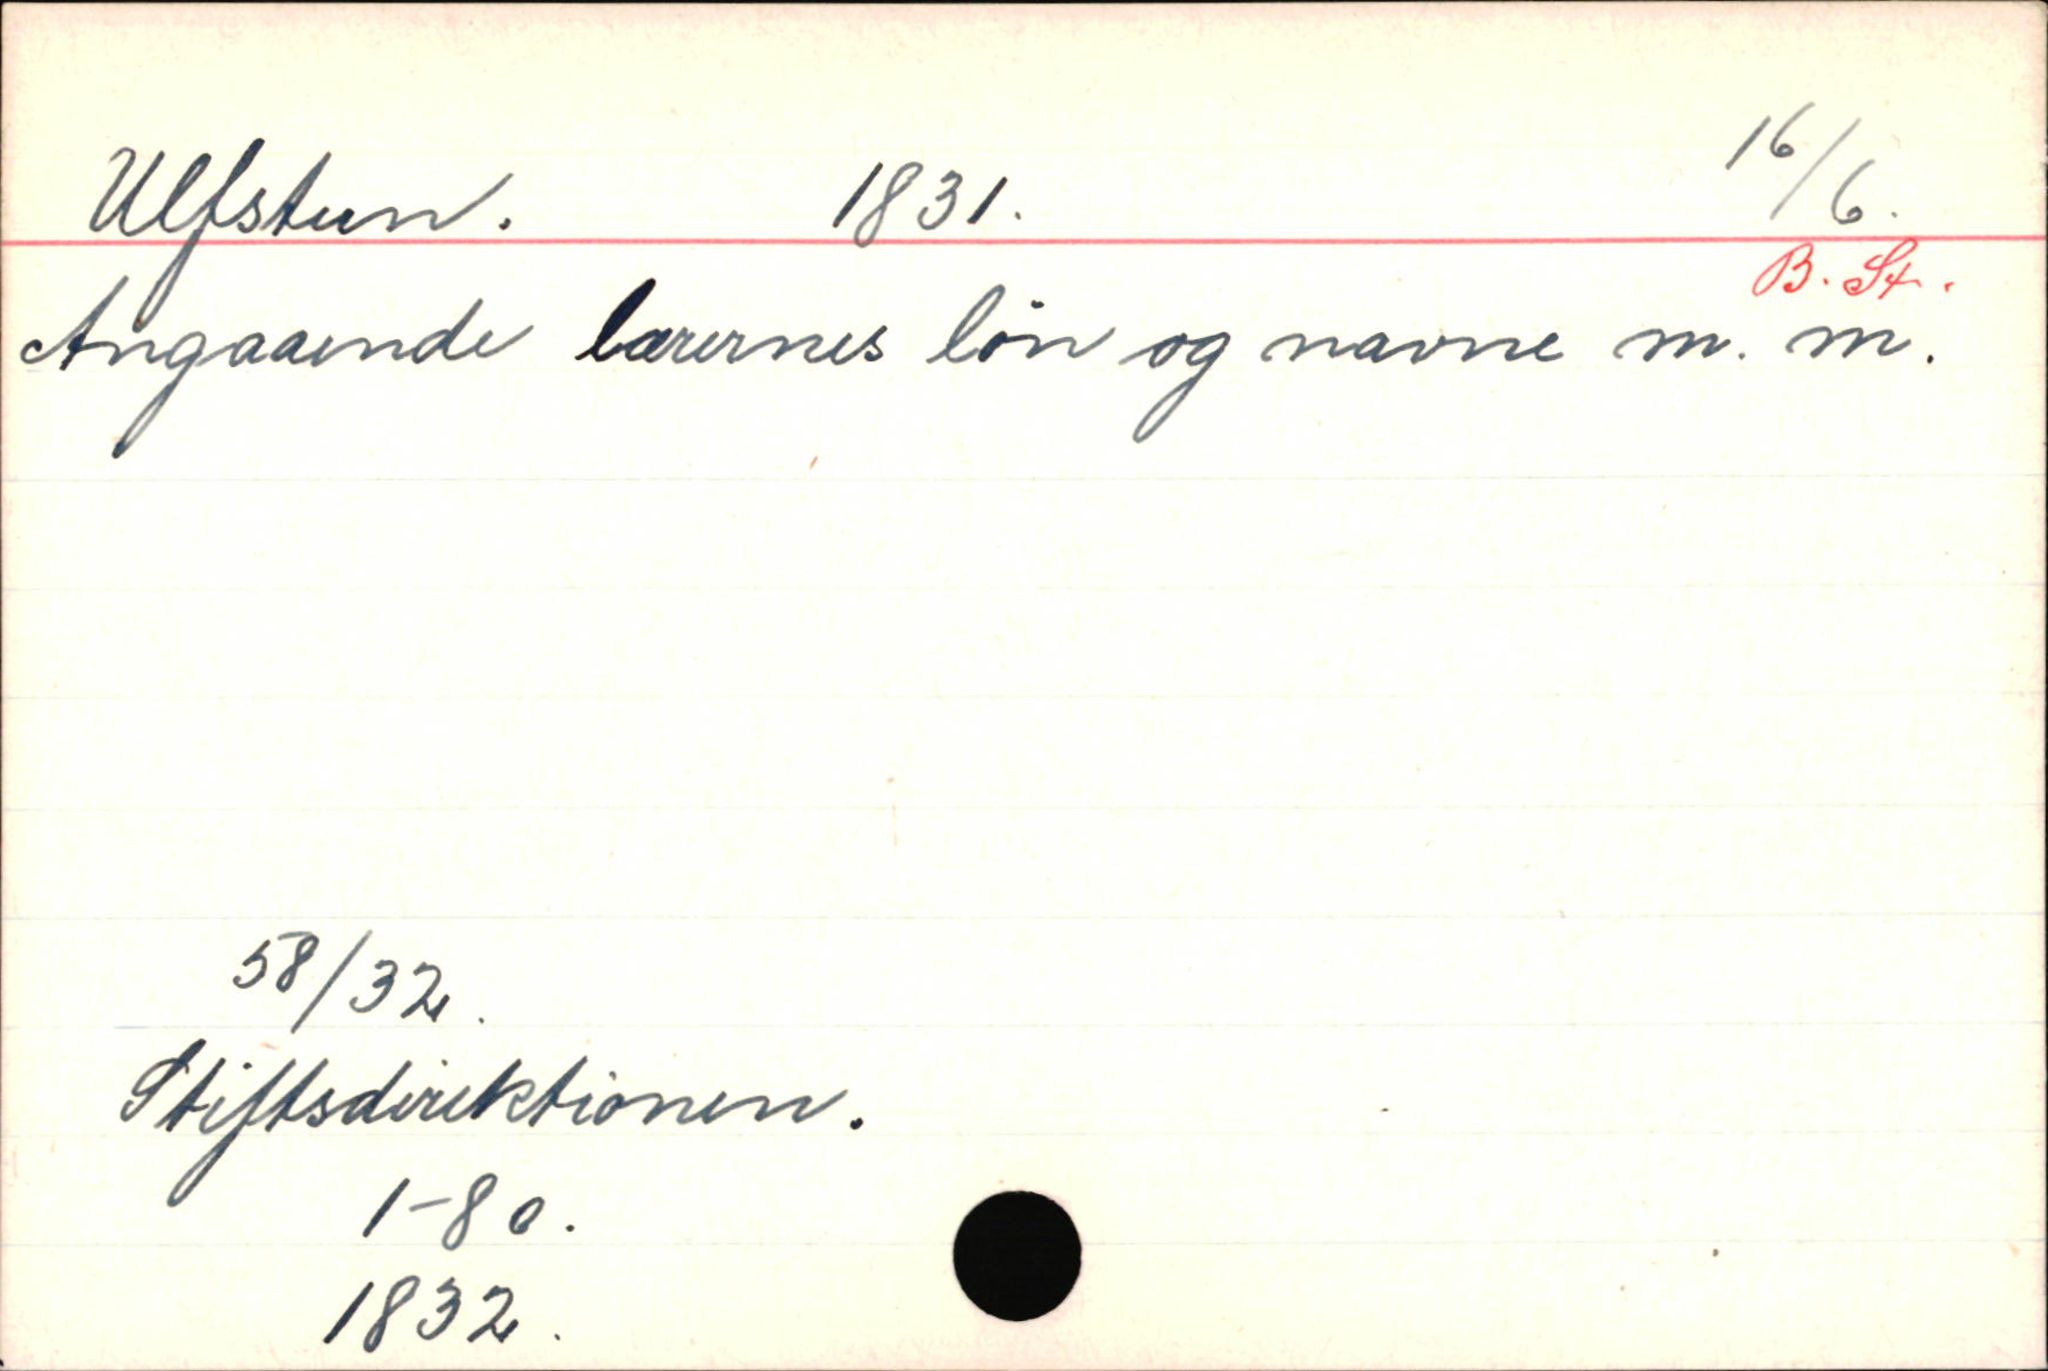 Ulfstun. 1831. 16/6.
B. St.
Angaaende lærernes løn og navne m. m.
58/32.
Stiftsdirektionen.
1-80.
1832.